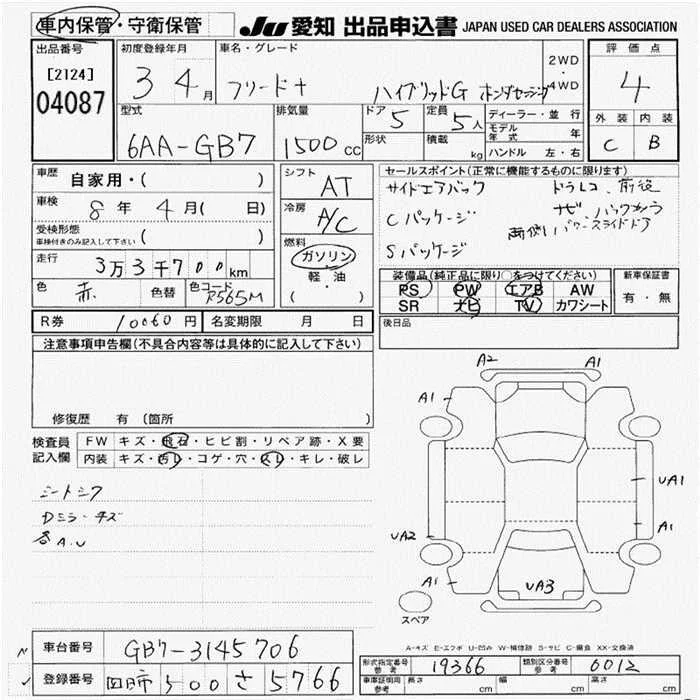 車内保管・守衛保管
JU 愛知 出品申込書 JAPAN USED CAR DEALERS ASSOCIATION
出品番号 [2124] 04087
初度登録年月 3 4月
車名・グレード フリード+ ハイブリッドG ホンダセンシング
2WD・4WD
評価点 4
外装 C 内装 B
型式 6AA-GB7
排気量 1500cc
ドア 5
形状
定員 5人
積載 kg
ディーラー・並行
モデル年式 年
ハンドル 左・右
車歴 自家用・( )
車検 8年 4月( 日)
受検形態 車検付きのみ記入して下さい ( )
走行 3万3千700km
色 赤 色替 色コード R565M
シフト AT
冷房 A/C
燃料 ガソリン・軽・油 ( )
セールスポイント(正常に機能するものに限ります)
サイドエアバック ドラレコ 前後
Cパッケージ ナビ、バックカメラ
両側パワースライドドア
Sパッケージ
装備品(純正品に限り○をつけてください)
PS PW エアB AW
SR ナビ TV カワシート
新車保証書 有・無
後日品
R券 10060円 名変期限 月 日
注意事項申告欄(不具合内容等は具体的に記入して下さい)
修復歴 有 (箇所 )
検査員記入欄
FW キズ・飛石・ヒビ割・リペア跡・X要
内装 キズ・汚レ・コゲ・穴・スレ・キレ・破レ
シートシワ
Dミラーキズ
各A.U
A2 A1
A1
UA1
A1
UA2
A1
UA3
スペア
A-キズ E-エクボ U-凹み W-補修跡 S-サビ C-腐食 XX-交換済
車台番号 GB7-3145706
登録番号 500 さ 5766
形式指定番号 参考 19366
類別区分番号 参考 6012
車庫証明用 参考 長さ cm 幅 cm 高さ cm